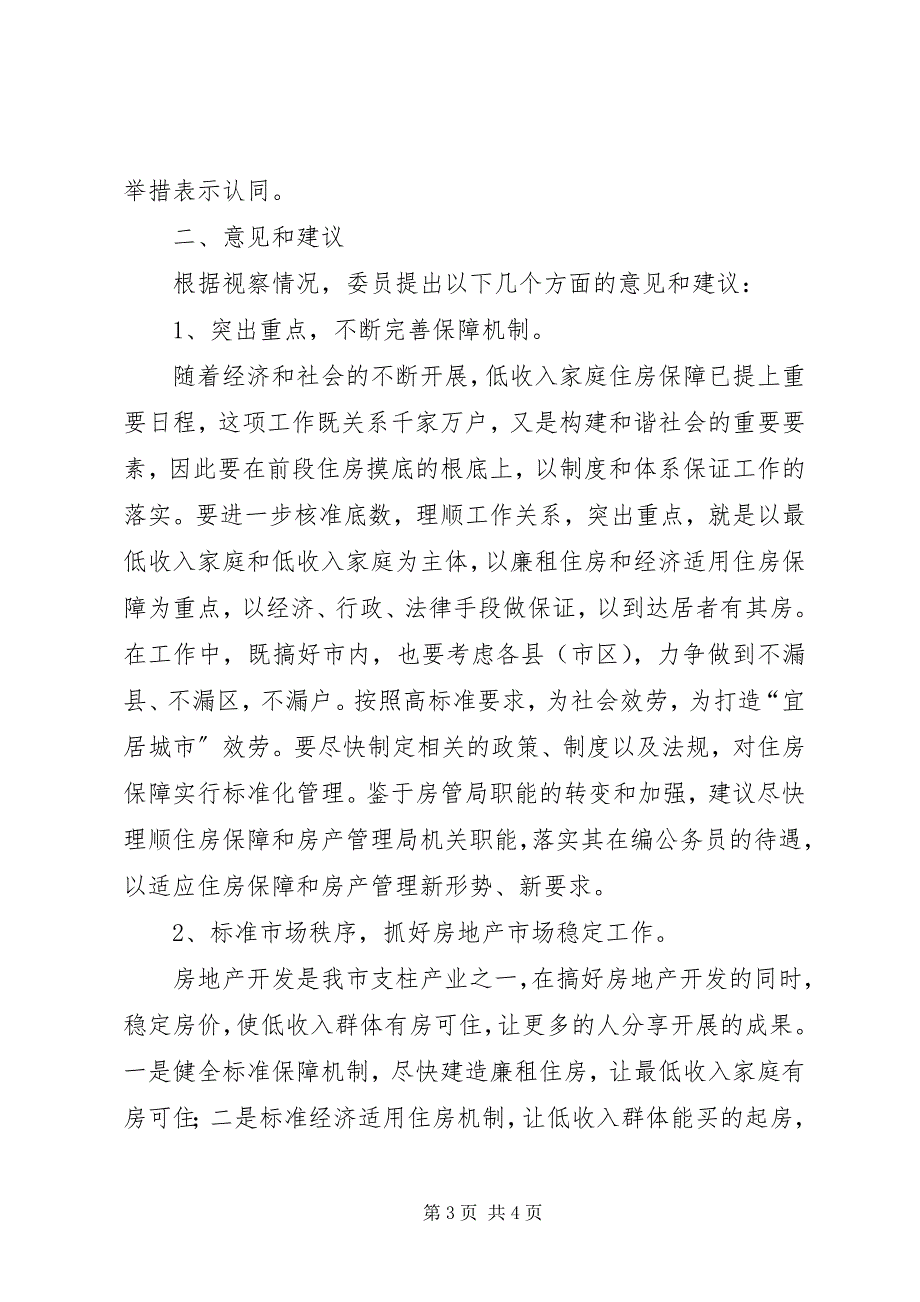 举措表示认同。
二、意见和建议
根据视察情况，委员提出以下几个方面的意见和建议：
1、突出重点，不断完善保障机制。
随着经济和社会的不断开展，低收入家庭住房保障已提上重
要日程，这项工作既关系千家万户，又是构建和谐社会的重要要
素，因此要在前段住房摸底的根底上，以制度和体系保证工作的
落实。要进一步核准底数，理顺工作关系，突出重点，就是以最
低收入家庭和低收入家庭为主体，以廉租住房和经济适用住房保
障为重点，以经济、行政、法律手段做保证，以到达居者有其房。
在工作中，既搞好市内，也要考虑各县（市区），力争做到不漏
县、不漏区，不漏户。按照高标准要求，为社会效劳，为打造“宜
居城市〞效劳。要尽快制定相关的政策、制度以及法规，对住房
保障实行标准化管理。鉴于房管局职能的转变和加强，建议尽快
理顺住房保障和房产管理局机关职能，落实其在编公务员的待遇，
以适应住房保障和房产管理新形势、新要求。
2、标准市场秩序，抓好房地产市场稳定工作。
房地产开发是我市支柱产业之一，在搞好房地产开发的同时，
稳定房价，使低收入群体有房可住，让更多的人分享开展的成果。
一是健全标准保障机制，尽快建造廉租住房，让最低收入家庭有
房可住；二是标准经济适用住房机制，让低收入群体能买的起房，
第 3 页 共 4 页